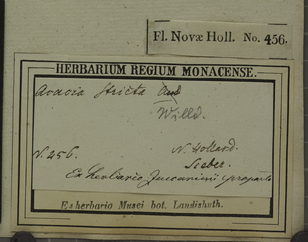 Fl. Novæ Holl. No. 456.
HERBARIUM REGIUM MONACENSE.
Acacia stricta And
Willd.
N. 456. N. Holland.
Sieber.
Ex herbario Zuccarinii propart.
Ex herbario Musei bot. Landishuth.